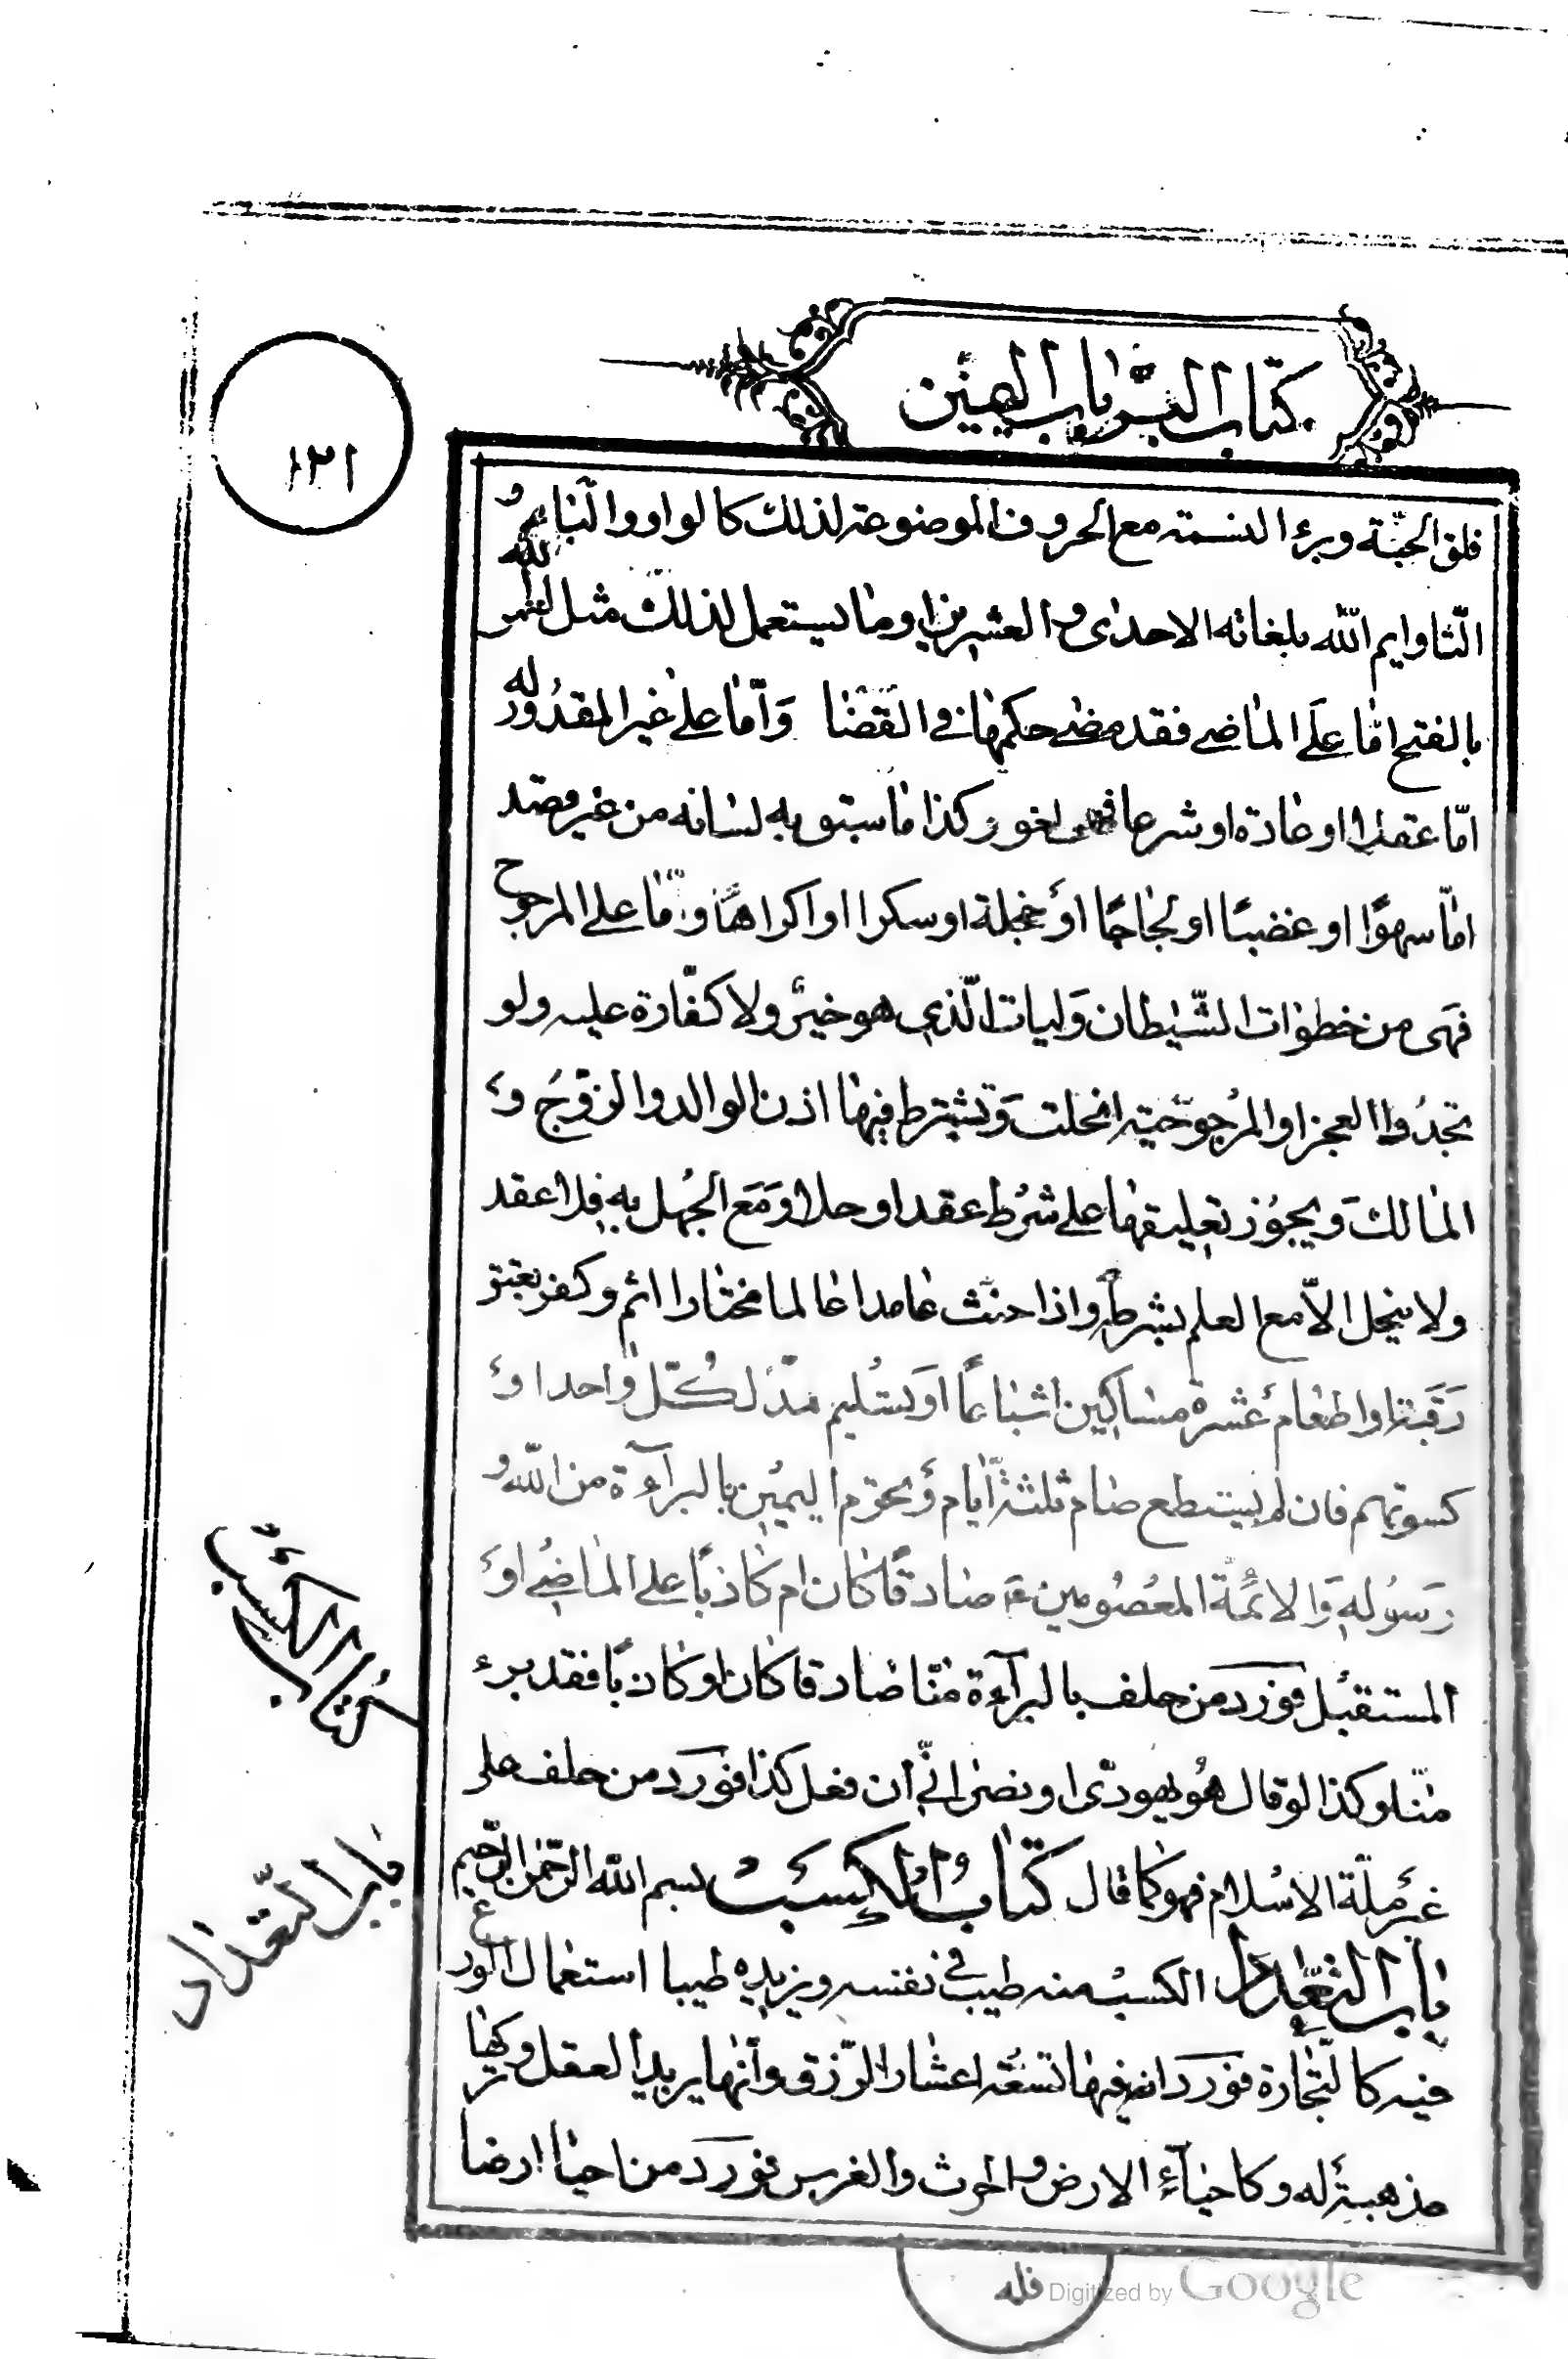 كتاب البر باب اليمين
١٣١
فلق الحبّة وبرء النسمة مع الحروف الموضوعة لذلك كالواو والبا
التا وايم الله بلغاته الاحدى والعشرين او ما يستعمل لذلك مثل لعمر الله
بالفتح امّا على الماضي فقد مضى حكمها في القضا وَامّا على غير المقدُور له
امّا عقلا او عادة او شرعا فهى لغو وكذا ما سبق به لسانه من غير قصد
امّا سهوًا او غضبًا او لجاجًا اوَ عجلة او سكرا او اكراهًا وامّا على المرجوح
فهَى من خطوات الشّيطان وَليات الّذي هو خيرٌ ولا كفّارة عليه ولو
تجدُد العجز او المرجوحيّة انحلت وَتشترط فيها اذن الوالد والزوّجَ وَ
المالكَ وَيجُوز تعليقها على شرُط عقدا وحلا وَمَع الجهل به فلا عقد
ولا ينحل الاّ مع العلم بشرطه واذا حنث عامدا عالما مختارا اثم وكفر بعتق
رَقَبة او اطعام عَشرة مساكين اشباعًا اوَ تسُليم مدّ لكُلّ واحد اوَ
كسوتهم فان لم يستطع صام ثلثة ايّام وَيحرّم اليمين بالبراءَة من الله و
رَسُوله وَالائمّة المعصُومين ع صادقًا كان ام كاذبًا على الماضُي اوَ
المستقبَل فورَد من حلف بالبراءة منّا صادقا كان او كاذبًا فقد برء
منّا وكذا لو قال هُو يهودّى او نصرانيّ ان فعل كذا فورَد من حلف على
غيَر ملّة الاسُلام فهو كما قال كتابُ الْمكسَبْ بسم الله الرّحمن الرّحيم
بابُ التّعداد الكسبُ منه طيب في نفسه ويزيده طيبا استعمال الورع
فيه كالتّجارة فورَد ان فيها تسعُة اعشار الرّزق وأنّها يزيد العقل وتركها
مذهبة له وكاحيآءِ الارض والحرث والغرس فورَد من احيا ارضا
كتاب المكسب
باب التّعداد
فله
Digitized by Google